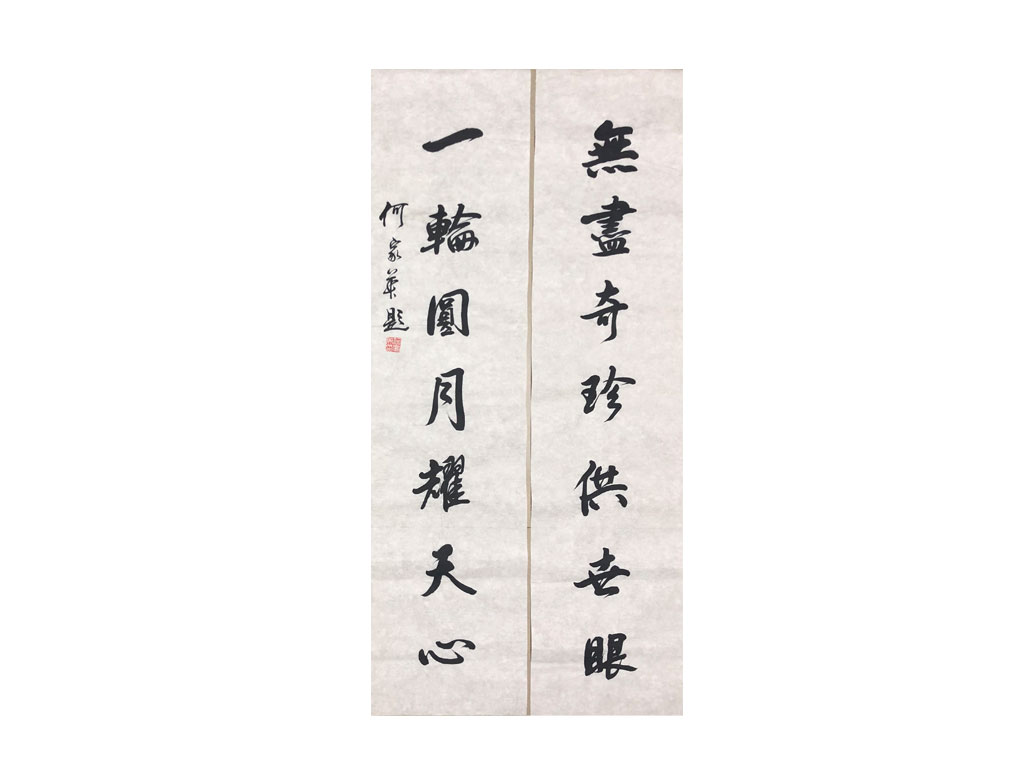 無盡奇珍供世眼
一輪圓月耀天心
何家華題